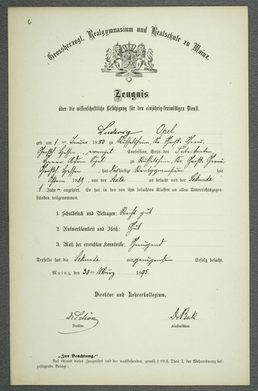 Grossherzogl. Realgymnasium und Realschule zu Mainz.
Zeugnis
über die wissenschaftliche Befähigung für den einjährig-freiwilligen Dienst.
Ludwig Opel
geb. am 1ten Januar 1880 zu Rüsselsheim, Kr. Groß-Gerau,
Confession, Sohn des Fabrikanten
Adam Opel zu Rüsselsheim, Kr. Groß-Gerau
hat das Realgymnasium seit
Ostern 1889 von der Sexta an besucht und der Sekunda
1 Jahr angehört. Er hat in den von ihm besuchten Klassen an allen Unterrichtsgegen-
ständen teilgenommen.
1. Schulbesuch und Betragen: Recht gut
2. Aufmerksamkeit und Fleiß: Gut
3. Maß der erreichten Kenntnisse: Genügend
Derselbe hat die Sekunda mit genügendem Erfolg besucht.
Mainz, 30ten März 1895
Direktor und Lehrerkollegium.
Direktor.
Klassenführer.
„Zur Beachtung.“